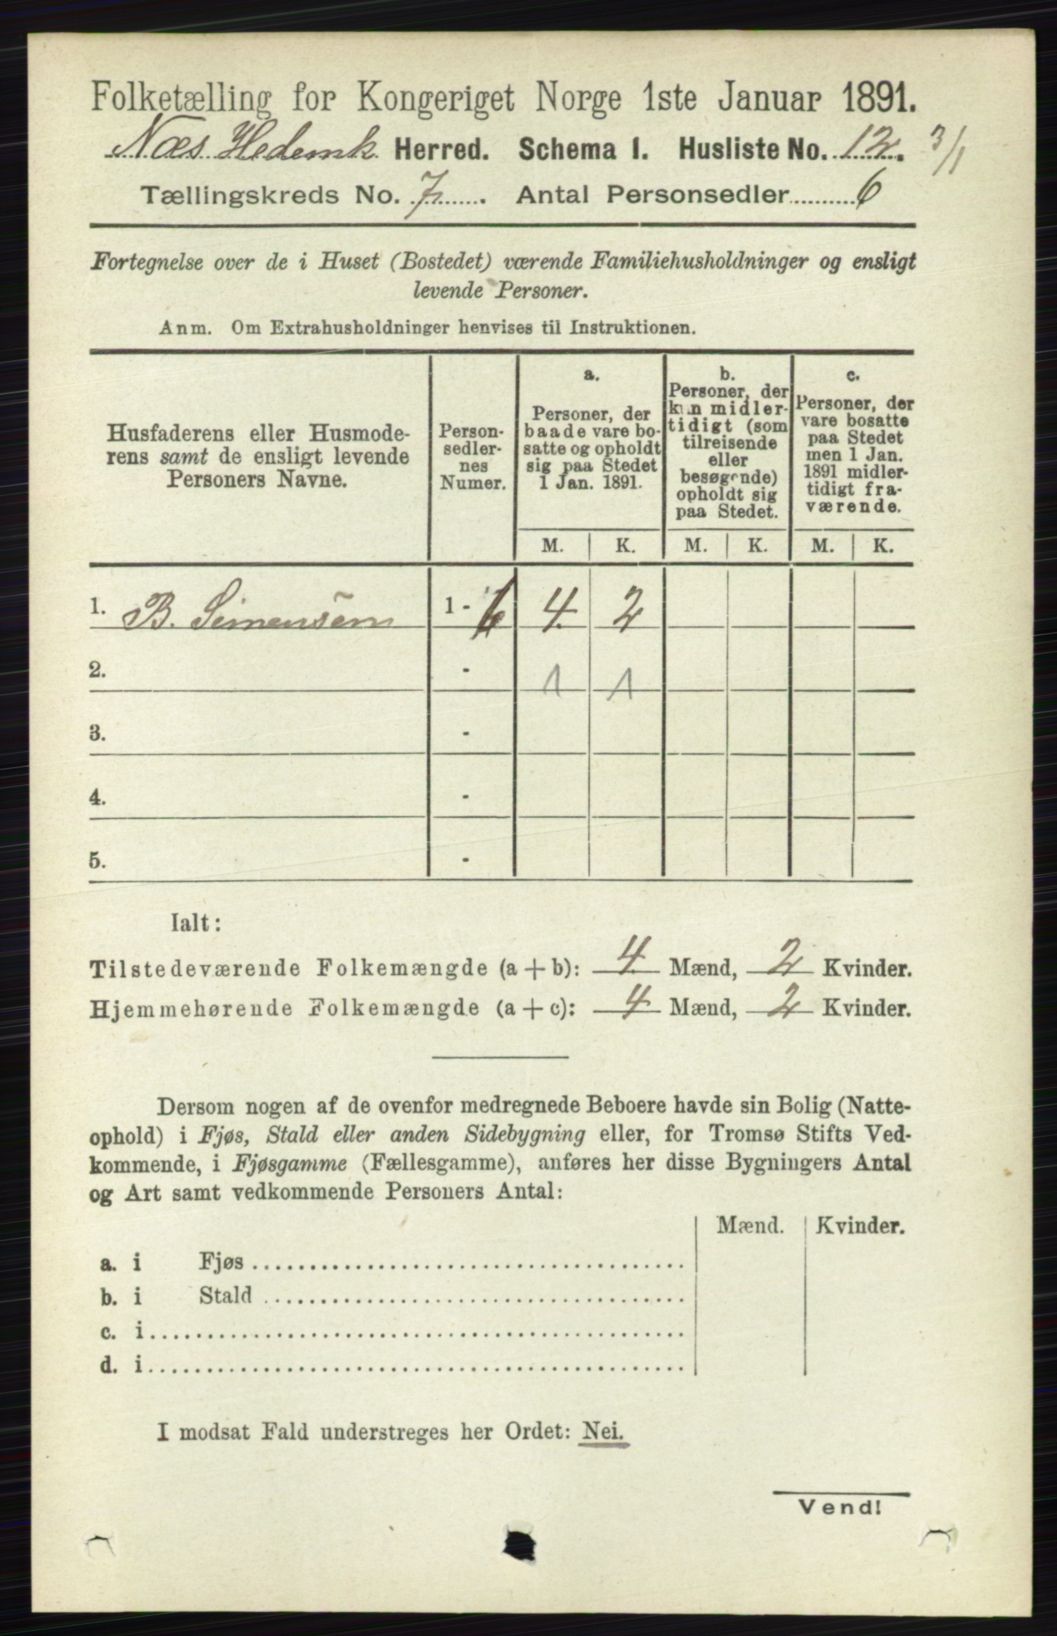 Folketælling for Kongeriget Norge 1ste Januar 1891.
Næs Hedemk. Herred. Schema 1. Husliste No. 12. 3/1
Tællingskreds No. 7. Antal Personsedler 6
Fortegnelse over de i Huset (Bostedet) værende Familiehusholdninger og ensligt
levende Personer.
Anm. Om Extrahusholdninger henvises til Instruktionen.
Husfaderens eller Husmode-
rens samt de ensligt levende
Personers Navne.
Person-
sedler-
nes
Numer.
a.
Personer, der
baade vare bo-
satte og opholdt
sig paa Stedet
1 Jan. 1891.
b.
Personer, der
kun midler-
tidigt (som
tilreisende
eller
besøgende)
opholdt sig
paa Stedet.
c.
Personer, der
vare bosatte
paa Stedet
men 1 Jan.
1891 midler-
tidigt fra-
værende.
M. K. M. K. M. K.
1. B. Simensen 1 - 6 4. 2
2. - 1 1
3. -
4. -
5. -
Ialt:
Tilstedeværende Folkemængde (a + b): 4. Mænd, 2 Kvinder.
Hjemmehørende Folkemængde (a + c): 4 Mænd, 2 Kvinder.
Dersom nogen af de ovenfor medregnede Beboere havde sin Bolig (Natte-
ophold) i Fjøs, Stald eller anden Sidebygning eller, for Tromsø Stifts Ved-
kommende, i Fjøsgamme (Fællesgamme), anføres her disse Bygningers Antal
og Art samt vedkommende Personers Antal:
Mænd. Kvinder.
a. i Fjøs
b. i Stald
c. i
d. i
I modsat Fald understreges her Ordet: Nei.
Vend!